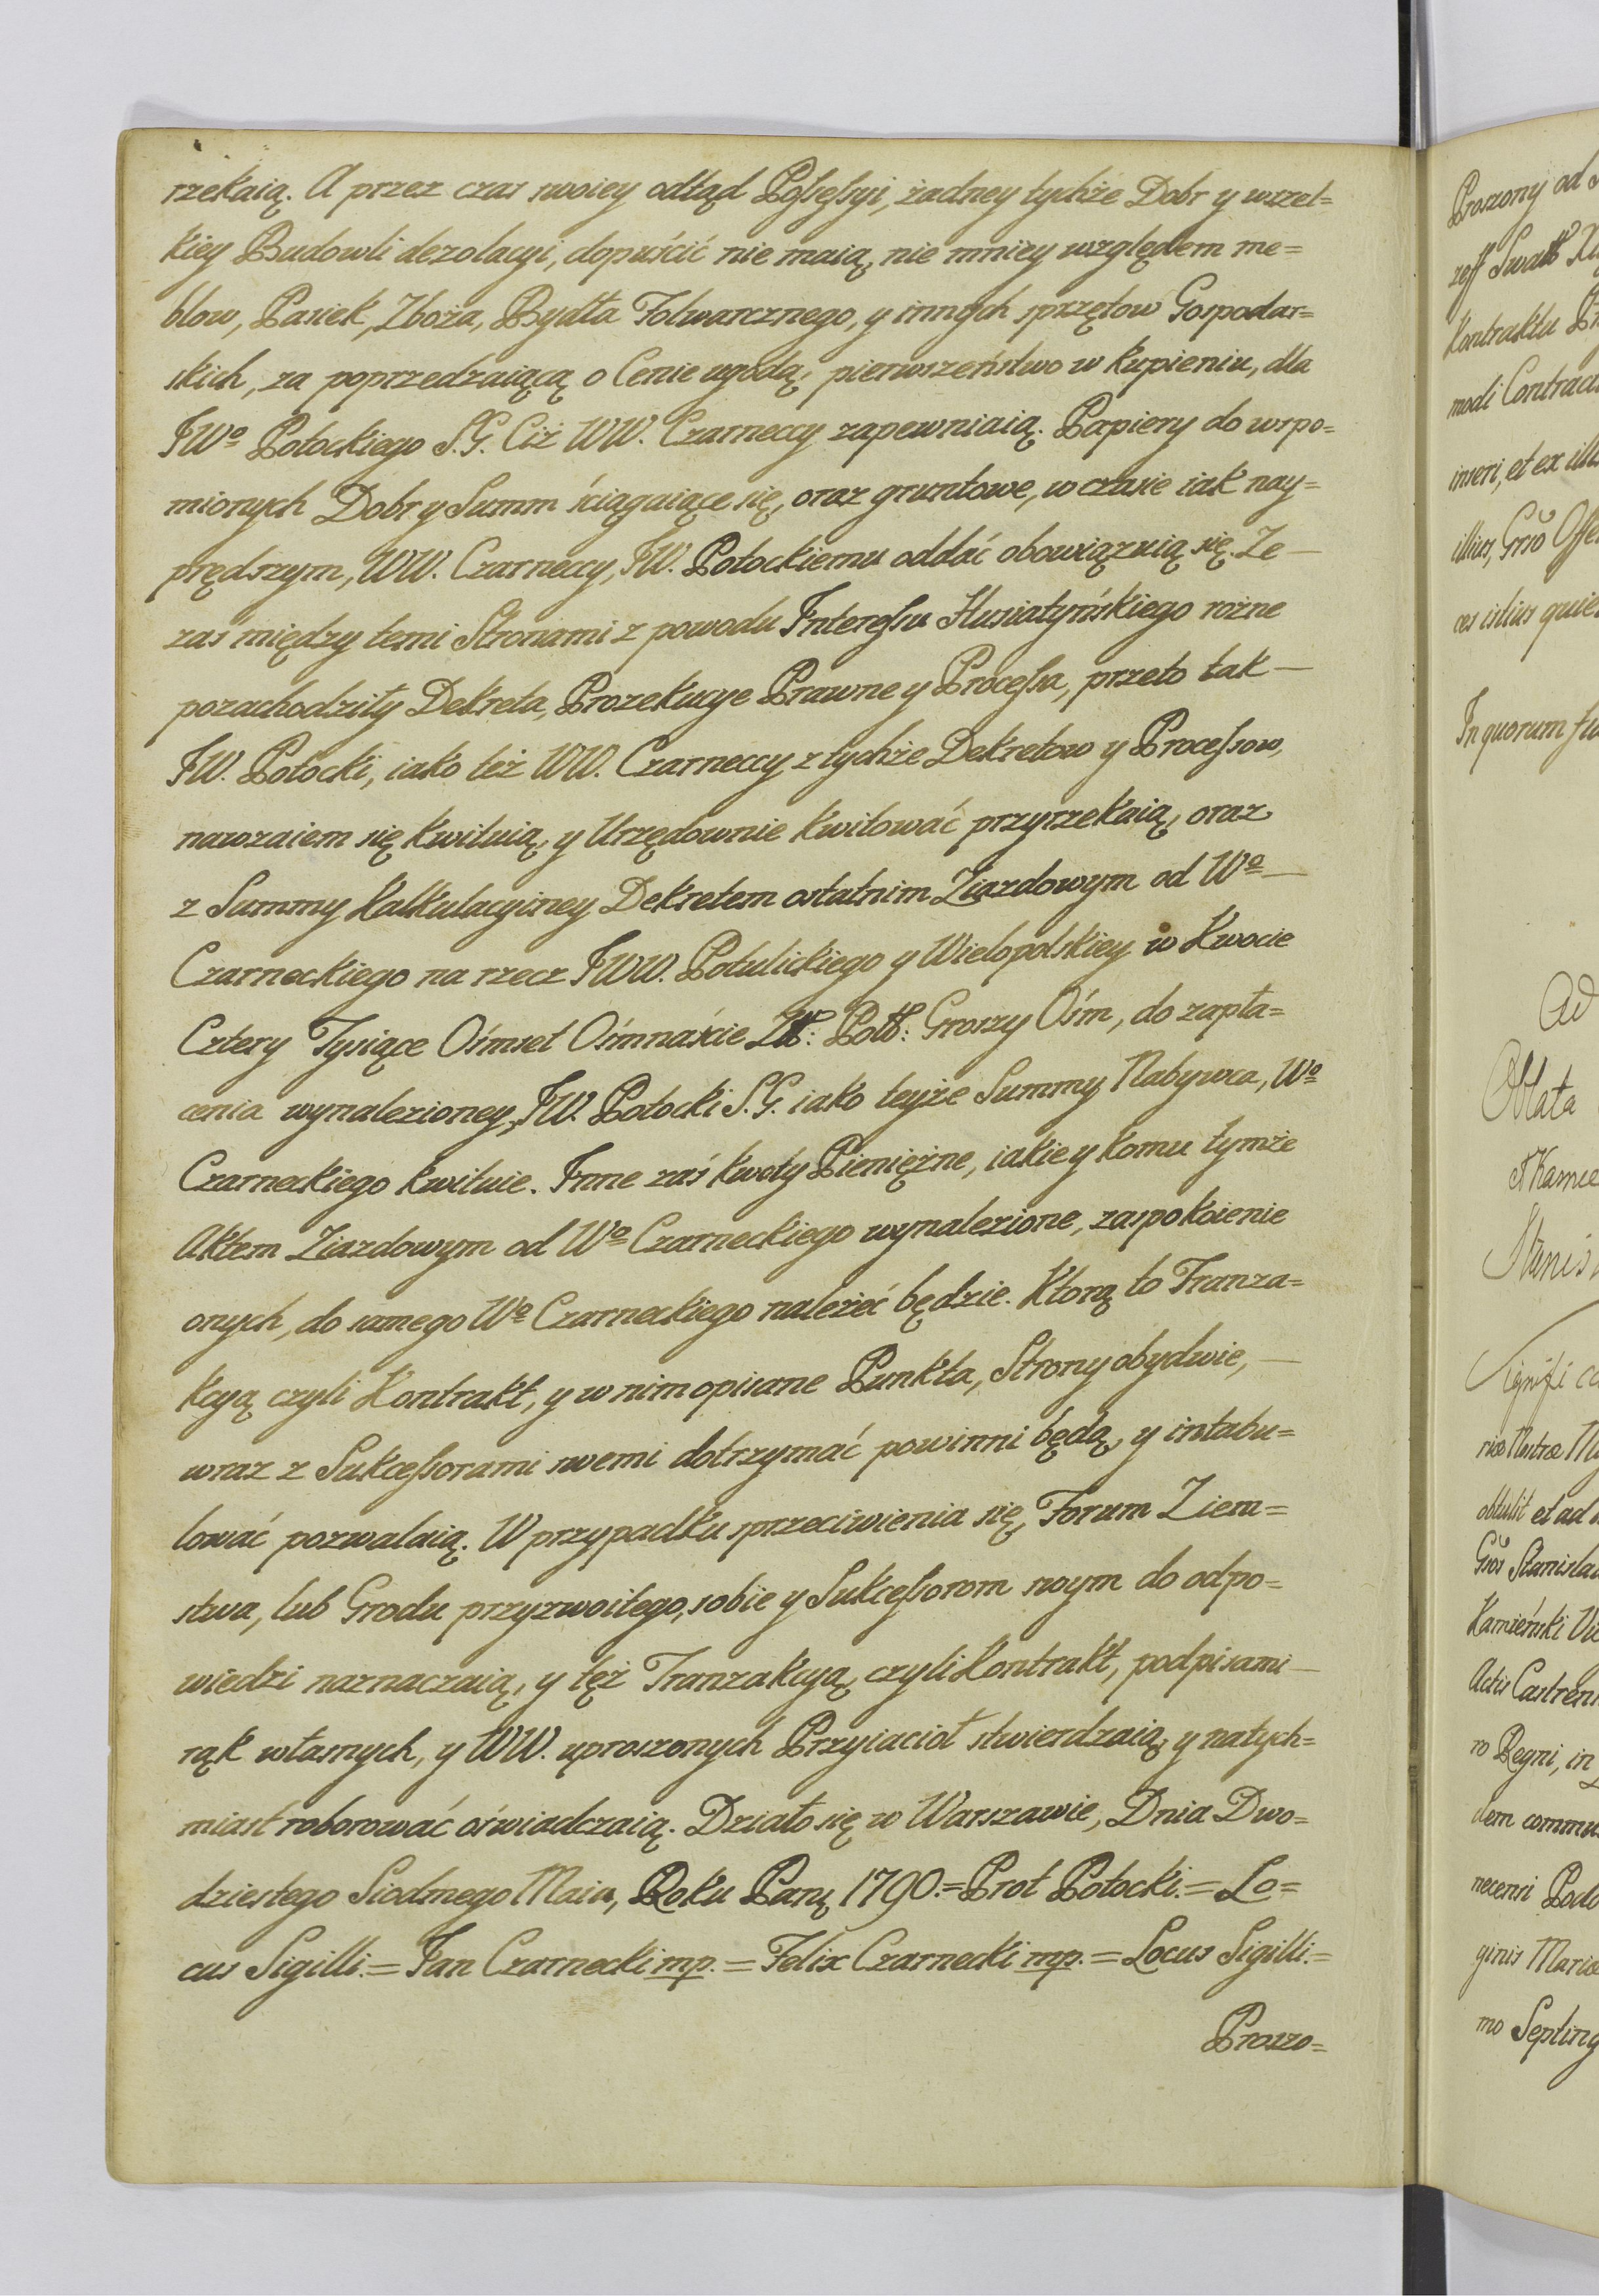 rzekaią. A przez czas swoiey odtąd Possessyi, żadney tychże Dobr y wszel=
kiey Budowli dezolacyi, dopuścić nie maią, nie mniey względem me=
blow, Pasiek, Zboża, Bydła Folwarcznego, y innych sprzętow Gospodar=
skich, za poprzedzaiącą o Cenie ugodą, pierwszeństwo w kupieniu, dla
JWº Potockiego S.G. Ciż WW. Czarneccy zapewniaią. Papiery do wspo=
mionych Dobr y Summ ściągaiące się, oraz gruntowe, w czasie iak nay=
prędszym, WW. Czarneccy, JW. Potockiemu oddać obowiązuią się. Ze —
zas między temi Stronami z powodu Interessu Husiatyńskiego rożne
pozachodziły Dekreta, Prozekucye Prawne y Processa, przeto tak —
JW. Potocki, iako też WW. Czarneccy z tychże Dekretow y Processow,
nawzaiem się kwituią, y Urzędownie kwitować przyrzekaią, oraz
z Summy Kalkulacyiney Dekretem ostatnim Ziazdowym od Wº —
Czarneckiego na rzecz JWW. Potulickiego y Wielopolskiey w Kwocie
Cztery Tysiące Ośmset Ośmnaście Złł: Poll: Groszy Ośm, do zapła=
cenia wynalezioney, JW. Potocki S.G. iako teyże Summy Nabywca, Wº
Czarneckiego kwituie. Inne zaś kwoty Pieniężne, iakie y komu tymże
Aktem Ziazdowym od Wº Czarneckiego wynalezione, zaspokoienie
onych, do samego Wº Czarneckiego należeć będzie. Ktorą to Tranza=
kcyą czyli Kontrakt, y w nim opisane Punkta, Strony obydwie, —
wraz z Sukcessorami swemi dotrzymać powinni będą, y intabu=
lować pozwalaią. W przypadku sprzeciwienia się, Forum Ziem=
stwa, lub Grodu przyzwoitego, sobie y Sukcessorom swym do odpo=
wiedzi naznaczaią, y tęż Tranzakcyą, czyli Kontrakt, podpisami —
rąk własnych, y WW. uproszonych Przyiacioł stwierdzaią, y natych=
miast roborować oświadczaią. Działo się w Warszawie, Dnia Dwo=
dziestego Siodmego Maia, Roku Panų 1790.= Prot Potocki.= Lo=
cus Sigilli.= Jan Czarnecki mp.= Felix Czarnecki mp.= Locus Sigilli.=
Proszo=
Proszony od
Kontraktu
modi
inseri, et ex
illius, Grso
ces istius
In quorum
Ad
Oblata
Stanis
obtulit et ad
Grsos
Kamieński
Actis
ro Regni, in
dem
ginis
mo